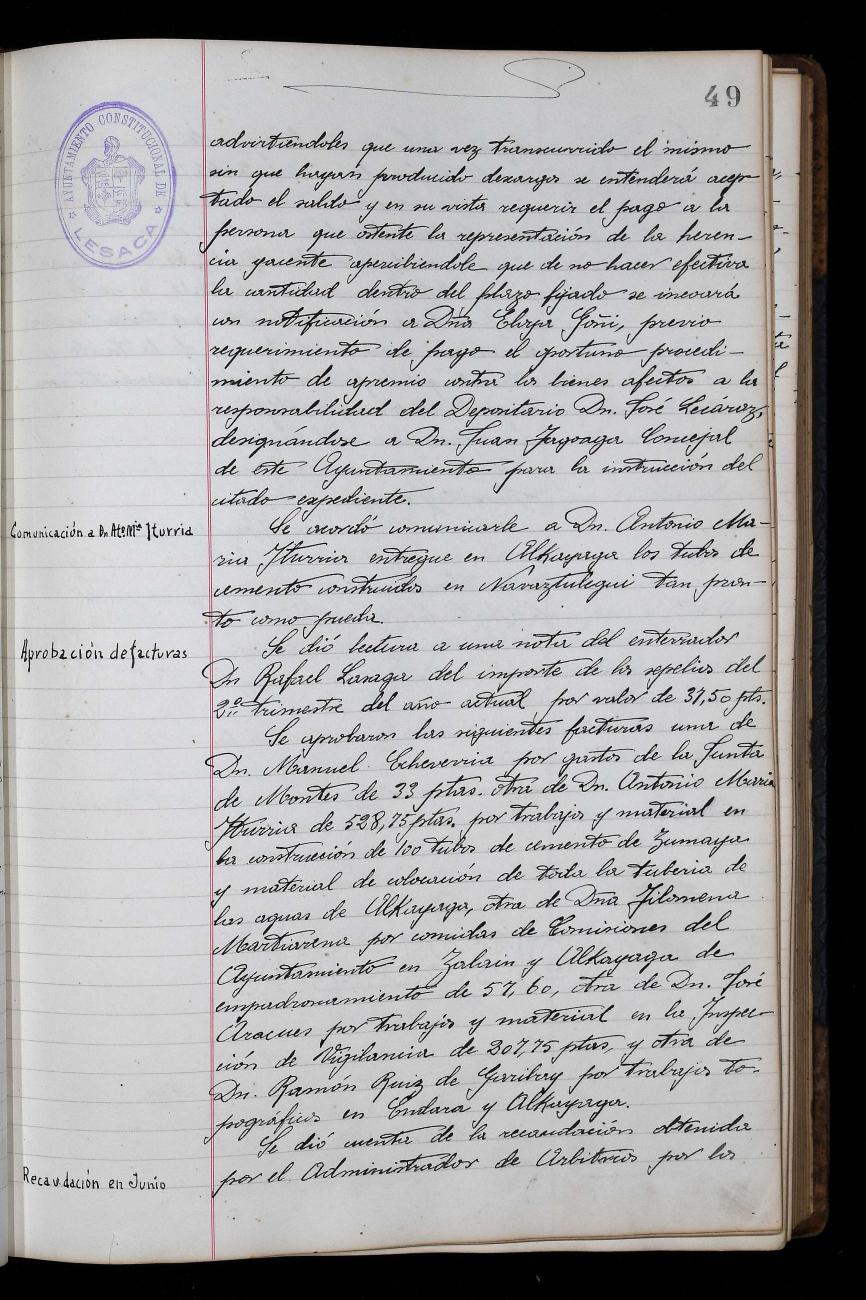 49
AYUNTAMIENTO CONSTITUCIONAL DE
LESACA
advirtiendoles que una vez transcurrido el mismo
sin que hayan producido descargos se entenderá acep
tado el saldo y en su vista requerir el pago a la
persona que ostente la representación de la heren-
cia yacente apercibiendole que de no hacer efectiva
la cantidad dentro del plazo fijado se incoará
con notificación a Dña Goñi, previo
requerimiento de pago el oportuno procedi-
miento de apremio contra los bienes afectos a la
responsabilidad del Depositario Dn. José
designándose a Dn. Juan Jagoaga Concejal
de este Ayuntamiento para la instrucción del
citado expediente.
Comunicación a Dn Atº Mª Iturria
Se acordó comunicarle a Dn. Antonio Ma-
ria Iturria entregue en Alkayaga los tubos de
cemento construidos en Navaztulegui tan pron-
to como pueda.
Aprobación de facturas
Se dió lectura a una nota del enterrador
Dn Rafael Lasaga del importe de los sepelios del
2º trimestre del año actual, por valor de 37,50 pts.
Se aprobaron las siguientes facturas una de
Dn. Manuel Echeverria por gastos de la Junta
de Montes de 33 ptas. otra de Dn. Antonio Maria
Iturria de 528,75 ptas. por trabajos y material en
la construcción de 100 tubos de cemento de Zumaya
y material de colocación de toda la tuberia de
las aguas de Alkayaga, otra de Dña Filomena
Martiarena por comidas de Comisiones del
Ayuntamiento en Zalain y Alkayaga de
empadronamiento de 57,60, otra de Dn. José
Aracues por trabajos y material en la Inspec-
ción de Vigilancia de 307,75 ptas, y otra de
Dn. Ramón Ruiz de Garibay por trabajos to-
pográficos en Endara y Alkayaga.
Se dió cuenta de la recaudación obtenida
Recaudación en Junio
por el Administrador de Arbitrios por los